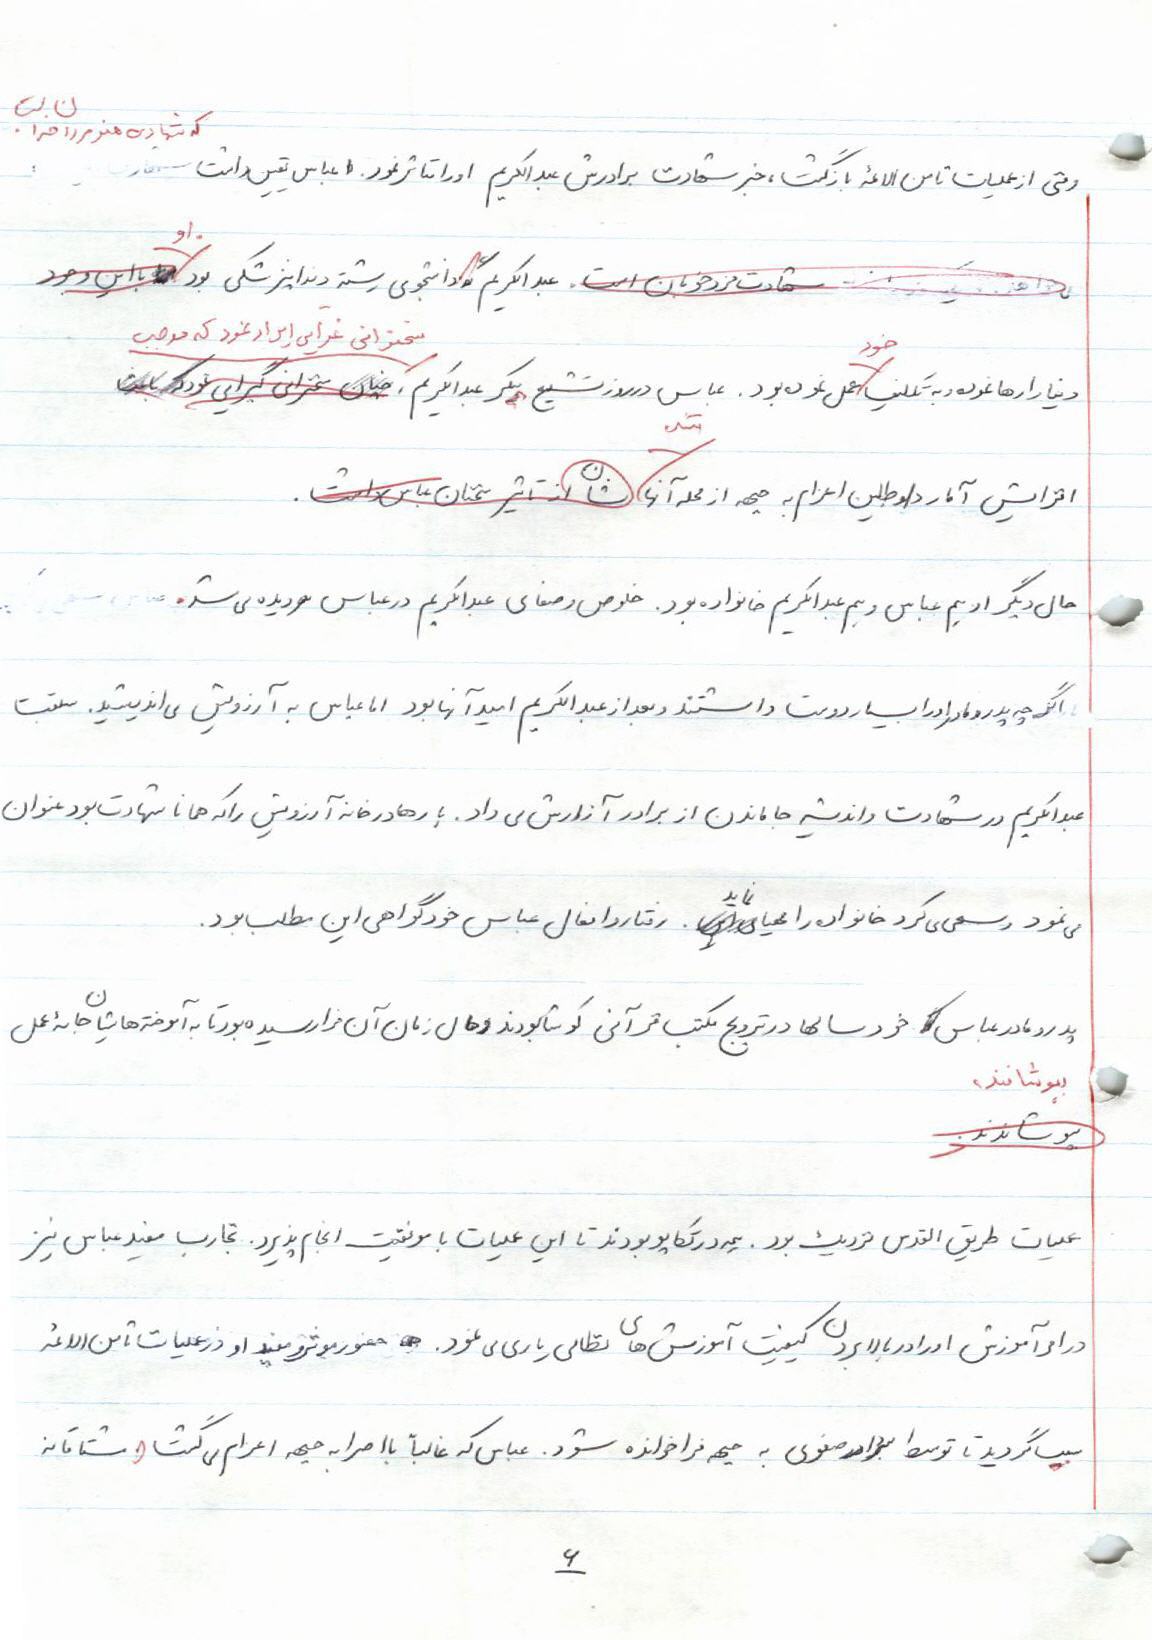 ن است
که شهادت هنر مردان خدا
وقتی از عملیات ثامن الائمه بازگشت، خبر شهادت برادرش عبدالکریم او را متاثر نمود. اما عباس یقین داشت
شهادت مزد خوبان است. عبدالکریم که دانشجوی رشته دندانپزشکی بود با این وجود
او
سخنرانی غرّایی ایراد نمود که موجب
خود
دنیا را رها نموده و به تکلیف عمل نموده بود. عباس در روز تشییع پیکر عبدالکریم، چنان سخنرانی گیرایی نمود که باعث
شد.
افزایش آمار داوطلبین اعزام به جبهه از محله آنها نشان از تاثیر سخنان عباس داشت.
حال دیگر او هم عباس و هم عبدالکریم خانواده بود. خلوص و صفای عبدالکریم در عباس هم دیده می شد. عباس سعی
اگر چه پدر و مادر او را بسیار دوست داشتند و بعد از عبدالکریم امید آنها بود اما عباس به آرزویش می اندیشید. سبقت
عبدالکریم در شهادت و اندیشه جا ماندن از برادر آزارش می داد. بارها در خانه آرزویش را که همانا شهادت بود عنوان
می نمود و سعی می کرد خانواده را مهیا نماید. رفتار و افعال عباس خود گواهی این مطلب بود.
پدر و مادر عباس که خود سالها در ترویج مکتب قرآنی کوشا بودند و حال زمان آن فرا رسیده بود تا به آموخته هاشان جامۀ عمل
بپوشانند،
بپوشاندند.
عملیات طریق القدس نزدیک بود. همه در تکاپو بودند تا این عملیات با موفقیت انجام پذیرد. تجارب مفید عباس نیز
در امر آموزش او را در بالا بردن کیفیت آموزش های نظامی یاری می نمود. حضور موثر و مفید او در عملیات ثامن الائمه
سبب گردید تا توسط برادر صفوی به جبهه فرا خوانده شود. عباس که غالباً با اصرار به جبهه اعزام می گشت مشتاقانه
۶